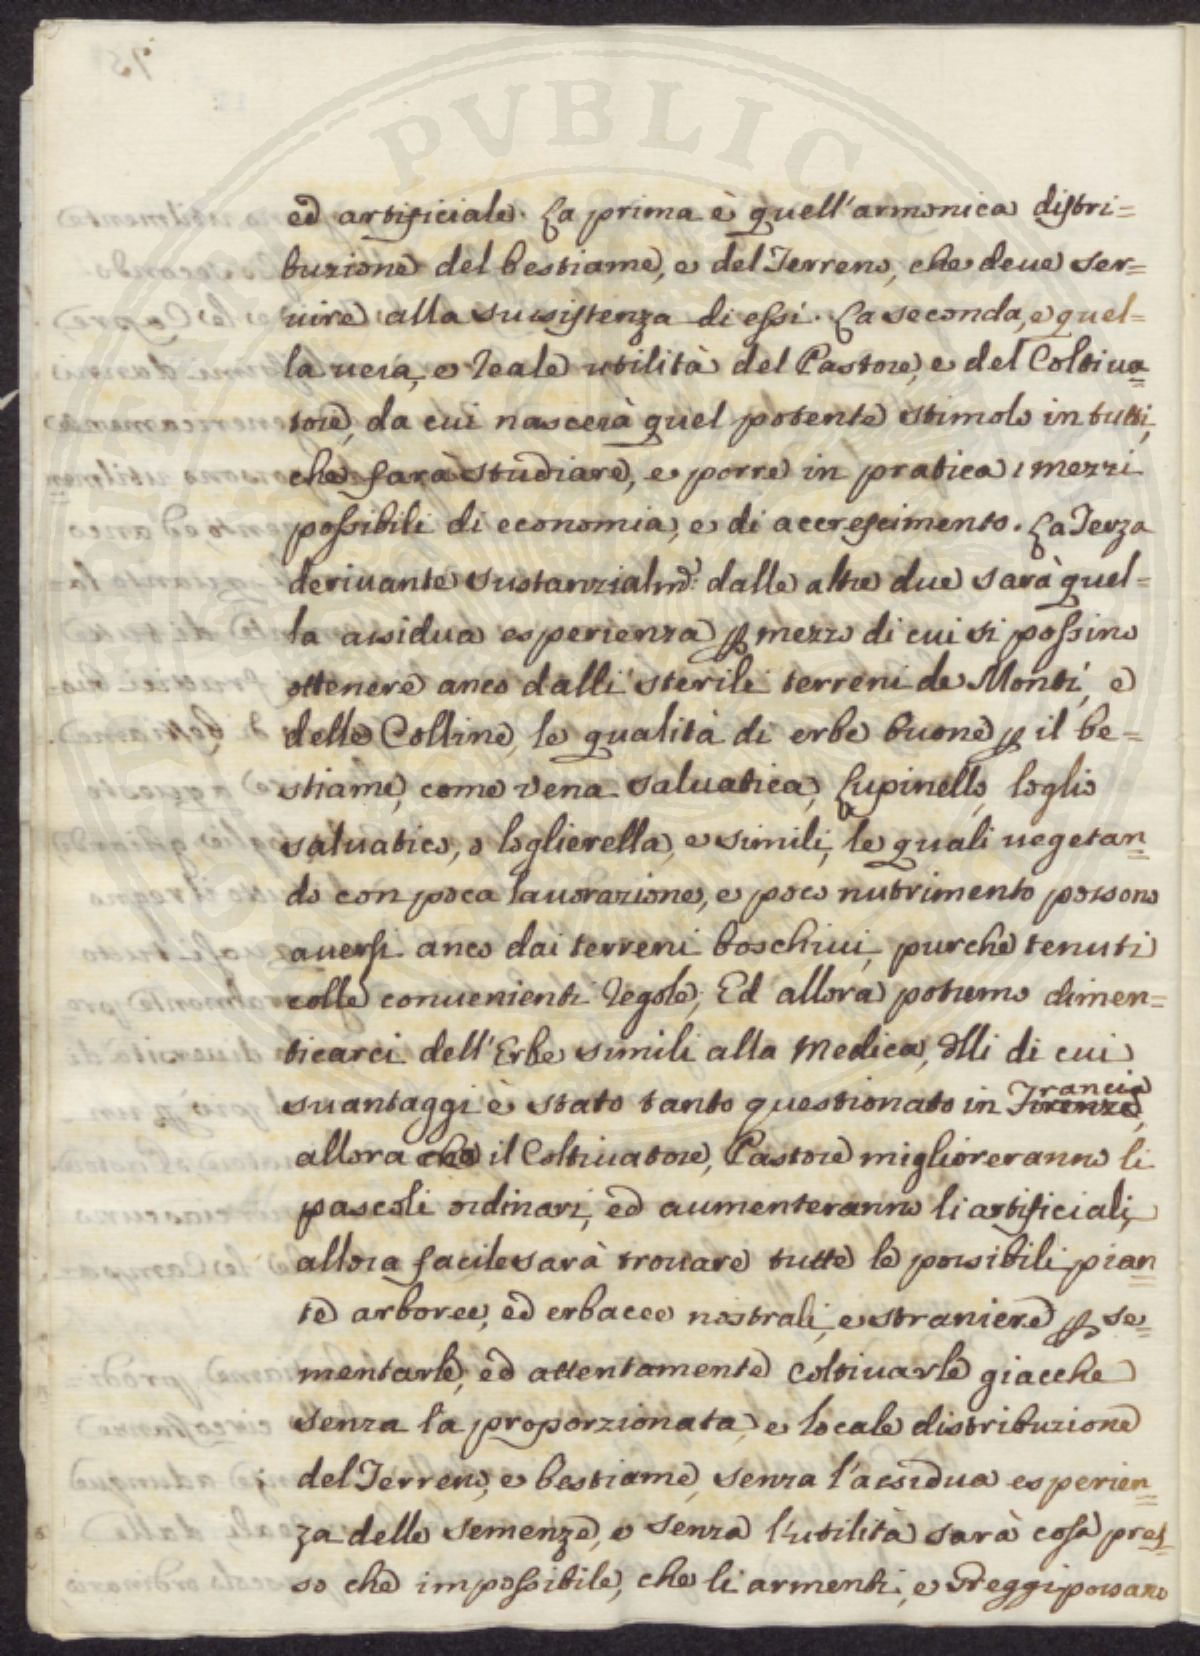 PVBLIC
ed artificiale. La prima è quell'armonica distri=
buzione del bestiame, e del Terreno, che deve ser=
uire alla sussistenza di essi. La seconda, e quel=
la uera, e reale utilità del Pastore, e del Coltiua=
tore, da cui nascerà quel potente stimolo in tutti,
che farà studiare, e porre in pratica i mezzi
possibili di economia, e di accrescimento. La Terza
deriuante sustanzialm.e dalle altre due sarà quel=
la assidua esperienza p mezzo di cui si possino
ottenere anco dalli sterili terreni de Monti, e
delle Colline, le qualità di erbe buone p il be=
stiame, come vena saluatica, Lupinello, loglio
saluatico, o loglierella, e simili, le quali uegetan=
do con poca lauorazione, e poco nutrimento possono
auersi anco dai terreni boschiui, purche tenuti
colle conuenienti regole; Ed allora potremo dimen=
ticarci dell'Erbe simili alla Medica, dlli di cui
suantaggi è stato tanto questionato in Francia,
allora il Coltiuatore, Pastore miglioreranno li
pascoli ordinari, ed aumenteranno li artificiali,
allora facile sarà trouare tutte le possibili pian=
te arboree, ed erbacee nostrali, e straniere p se=
mentarle, ed attentamente coltiuarle giacche
senza la proporzionata, e locale distribuzione
del Terreno, e bestiame, senza l'assidua esperien=
za delle semenze, e senza l'utilità sarà cosa pres=
so che impossibile, che li armenti, e Greggi possano